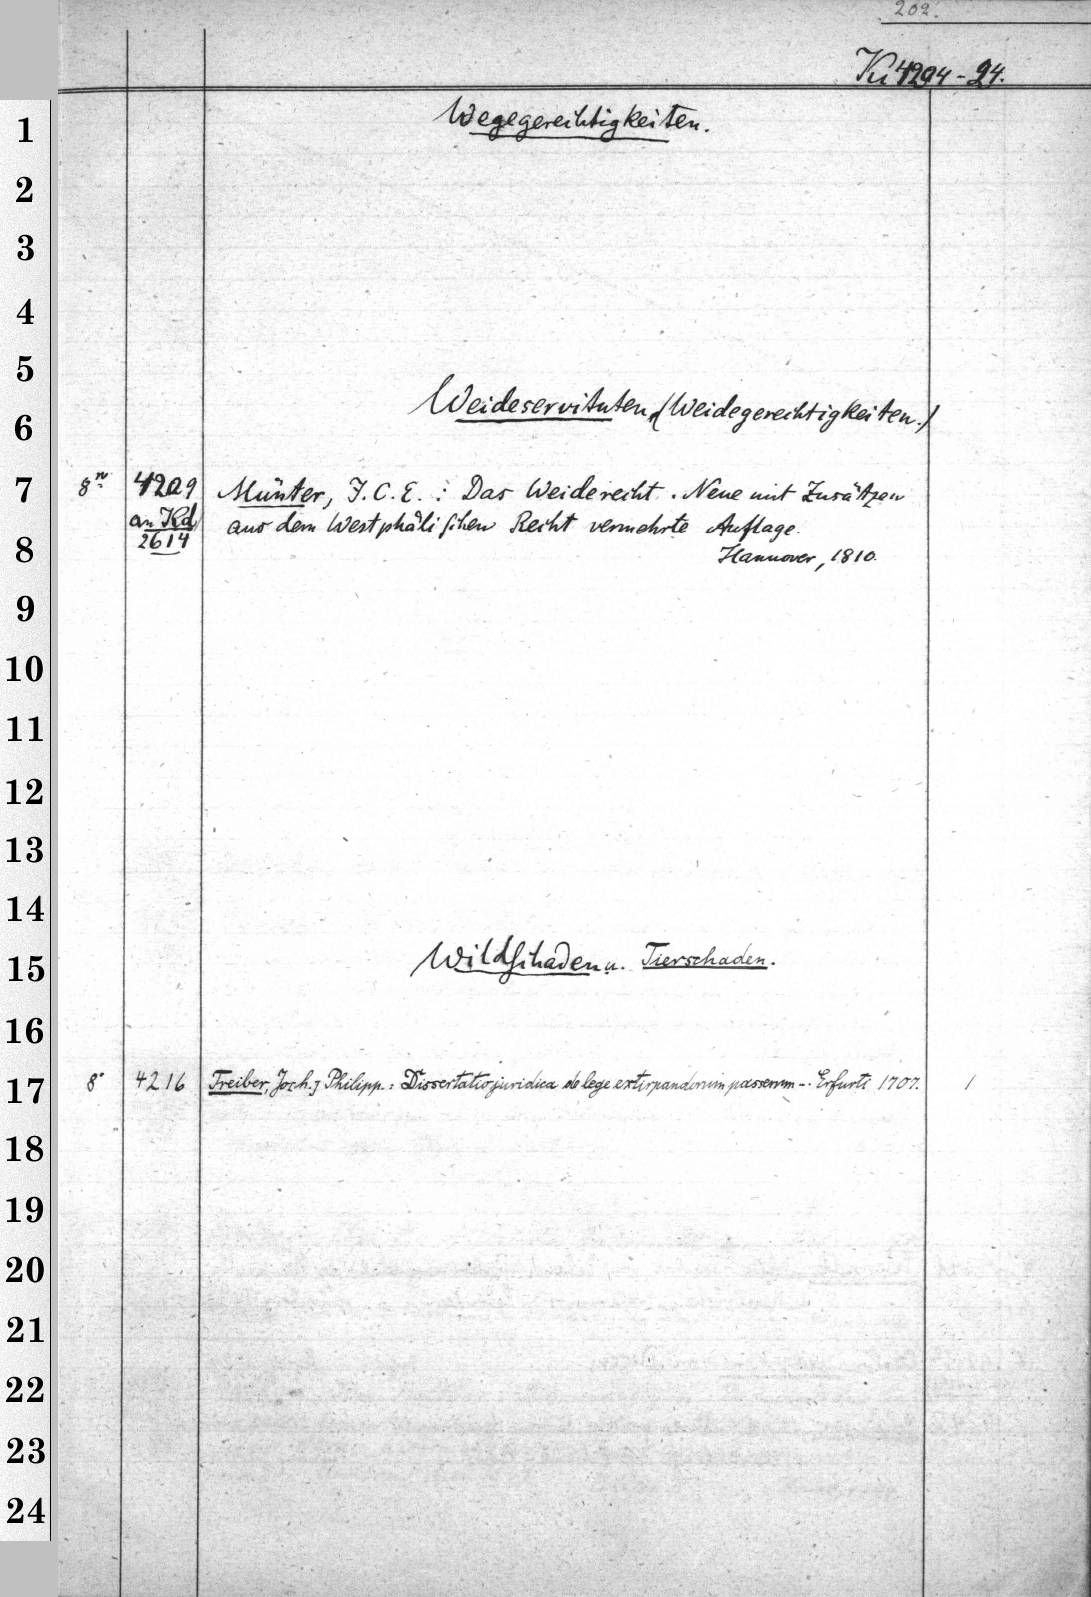 202.
Ku 4204-24.
Wegegerechtigkeiten.
Weideservituten (Weidegerechtigkeiten.)
8° 4209 Münter, J.C.E.: Das Weiderecht. Neue mit Zusätzen
an Kd aus dem Westphälischen Recht vermehrte Auflage.
2614
Hannover, 1810.
Wildschaden u. Tierschaden.
8° 4216 Treiber, Joch.] Philipp.: Dissertatio juridica de lege extirpandorum passerum -. Erfurti 1707. 1
1
2
3
4
5
6
7
8
9
10
11
12
13
14
15
16
17
18
19
20
21
22
23
24